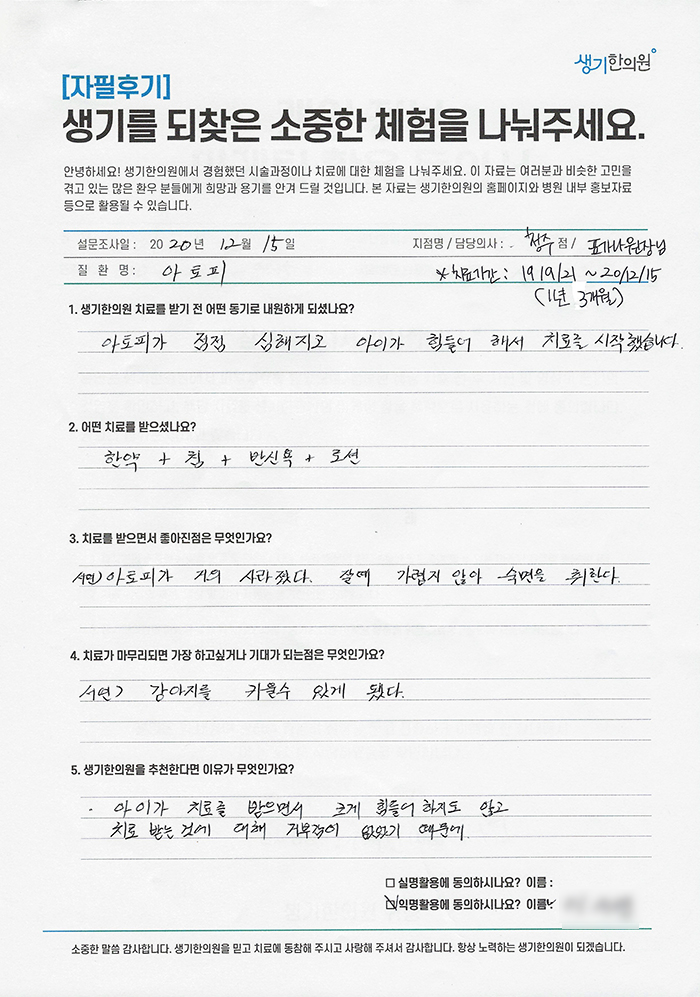 생기한의원
[자필후기]
생기를 되찾은 소중한 체험을 나눠주세요.
안녕하세요! 생기한의원에서 경험했던 시술과정이나 치료에 대한 체험을 나눠주세요. 이 자료는 여러분과 비슷한 고민을
겪고 있는 많은 환우 분들에게 희망과 용기를 안겨 드릴 것입니다. 본 자료는 생기한의원의 홈페이지와 병원 내부 홍보자료
등으로 활용될 수 있습니다.
설문조사일 : 20 20 년 12 월 15 일 지점명 / 담당의사 : 청주 점 / 표가나원장님
질 환 명 : 아토피 * 치료기간 : 19/9/21 ~ 20/12/15
(1년 3개월)
1. 생기한의원 치료를 받기 전 어떤 동기로 내원하게 되셨나요?
아토피가 점점 심해지고 아이가 힘들어 해서 치료를 시작했습니다.
2. 어떤 치료를 받으셨나요?
한약 + 침 + 반신욕 + 로션
3. 치료를 받으면서 좋아진점은 무엇인가요?
서연) 아토피가 거의 사라졌다. 잘때 가렵지 않아 숙면을 취한다.
4. 치료가 마무리되면 가장 하고싶거나 기대가 되는점은 무엇인가요?
서연) 강아지를 키울수 있게 됐다.
5. 생기한의원을 추천한다면 이유가 무엇인가요?
· 아이가 치료를 받으면서 크게 힘들어 하지도 않고
치료 받는것에 대해 거부적이 없었기 때문에.
실명활용에 동의하시나요? 이름 :
익명활용에 동의하시나요? 이름 :
소중한 말씀 감사합니다. 생기한의원을 믿고 치료에 동참해 주시고 사랑해 주셔서 감사합니다. 항상 노력하는 생기한의원이 되겠습니다.